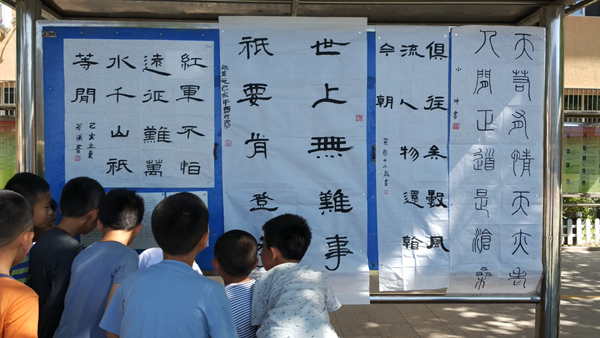 天若有情天亦老
人間正道是滄桑
俱往矣數風
流人物還看
今朝
世上無難事
祇要肯登
紅軍不怕
遠征難萬
水千山祇
等閒
己亥之夏